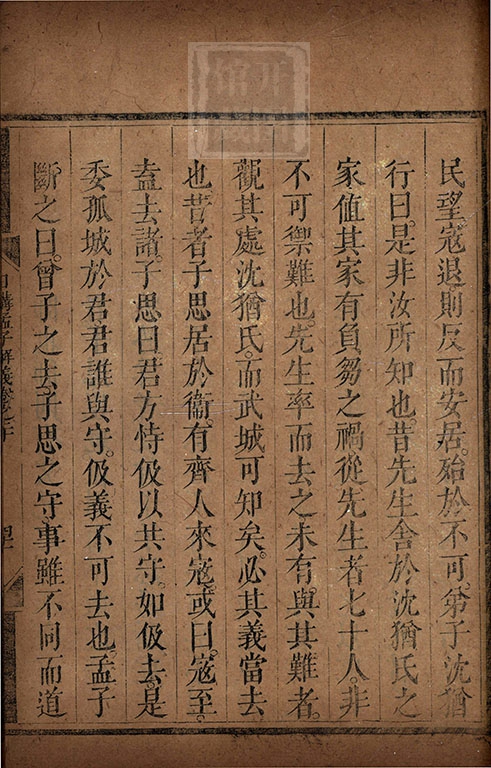 民望。寇退則反而安居。殆於不可。弟子沈猶
行曰。是非汝所知也。昔先生舍於沈猶氏之
家値其家有負芻之禍從先生者七十人。非
不可禦難也。先生率而去之未有與其難者。
觀其處沈猶氏。而武城可知矣。必其義當去
也昔者子思居於衞。有齊人來寇。或曰。寇至。
盍去諸。子思曰君方恃伋以共守。如伋去。是
委孤城於君君誰與守。伋義不可去也。孟子
斷之曰。曾子之去子思之守事雖不同而道
日講孟子解義卷之十